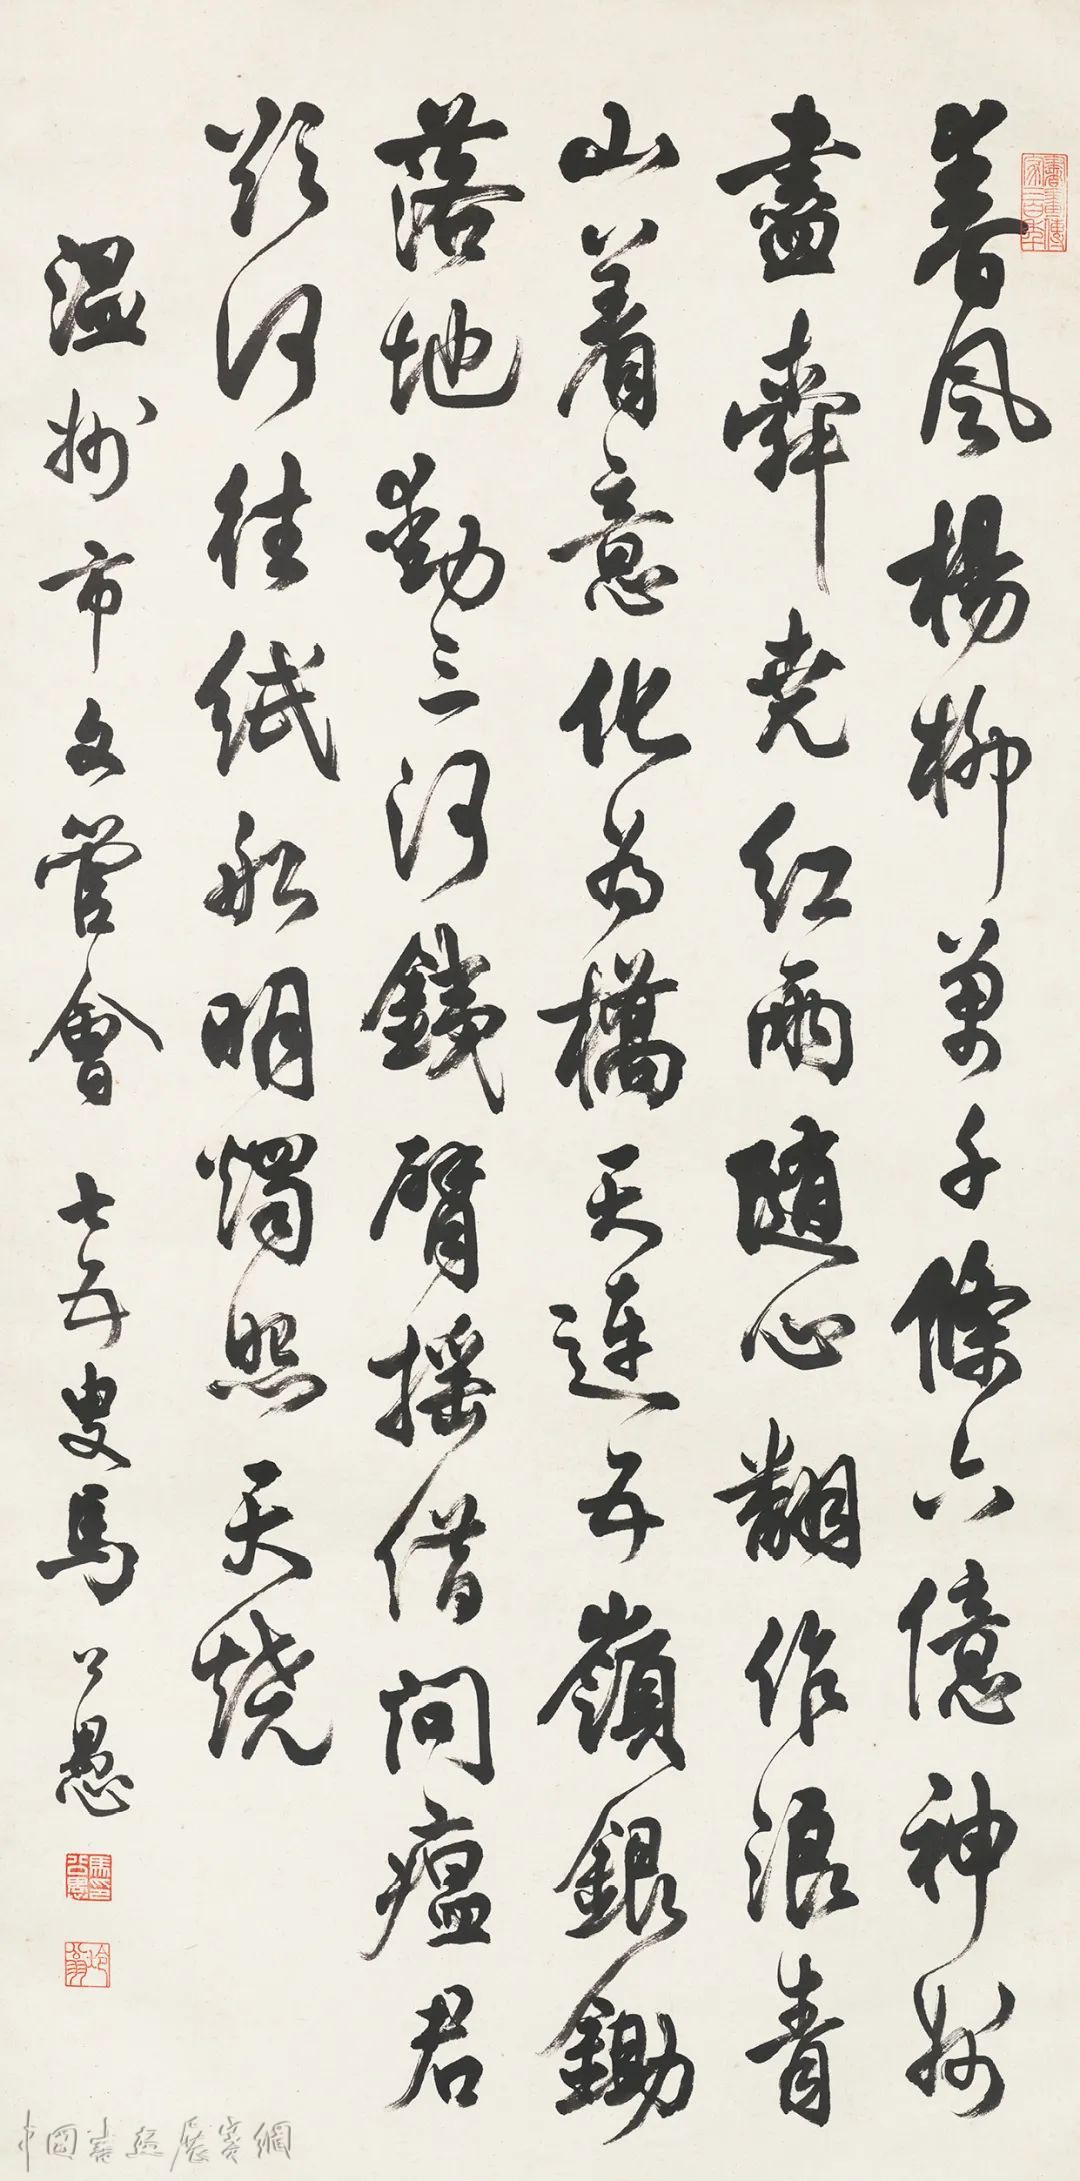 書畫傳家三百年
春風楊柳萬千條六億神州
盡舜堯紅雨隨心翻作浪青
山着意化為橋天連五嶺銀鋤
落地動三河鐵臂搖借問瘟君
欲何往紙船明燭照天燒
溫州市文管會 七五叟馬公愚
馬公愚印
冷翁
中國書法展賽網